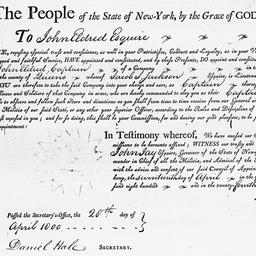 The People of the State of New-York, by the Grace of GOD
To John Aldred Esquire
WE, reposing especial trust and confidence, as well in your Patriotism, Conduct and Loyalty, as in your
and faithful Service, HAVE appointed and constituted, and by these Presents, DO appoint and constitute
John Aldred Captain of a Company
the county of Queens whereof Jackson Esquire, is Lieutenant
YOU are therefore to take the said Company into your charge and care, as Captain thereof
and Soldiers of that company in arms, who are hereby commanded to obey and respect you as their Captain
to observe and follow such orders and directions as you shall from time to time receive from our General
Militia of our said State, or any other your superior Officer, according to the Rules and Discipline of
reposed in you; and for so doing, this shall be your Commission, for and during our good pleasure, to be
appointment:
In Testimony whereof, We have caused our
missions to be hereunto affixed: WITNESS our trusty and
John Jay Esquire, Governor of the State of New
mander in Chief of all the Militia, and Admiral of the
with the advice and consent of our said Council of Appoint
bany, the Seventeenth day of April in the
sand eight hundred and in the twenty-fourth
Passed the Secretary's-Office, the 28th day of
April 1800
Daniel Hale SECRETARY.